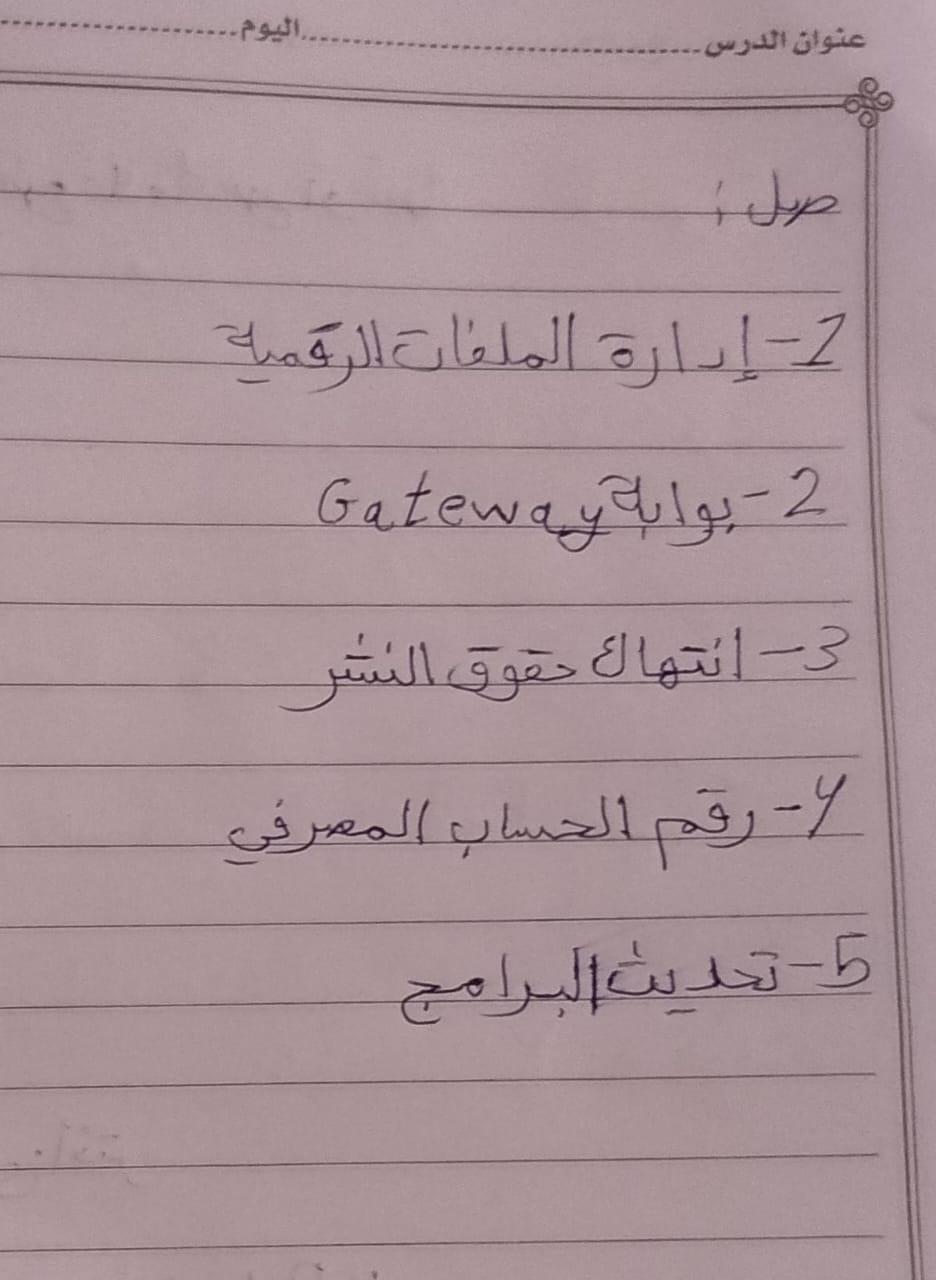 عنوان الدرس ........................................ اليوم ........................
صل :
1- إدارة الملفات الرقمية
2- بوابة Gateway
3- انتهاك حقوق النشر
4- رقم الحساب المصرفي
5- تحديث البرامج